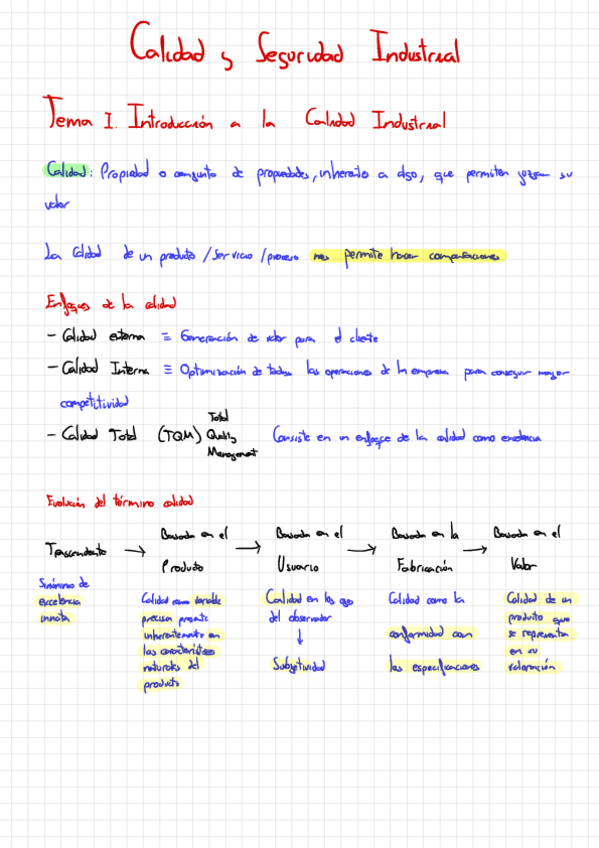 Calidad y Seguridad Industrial
Tema I. Introducción a la Calidad Industrial
Calidad: Propiedad o conjunto de propiedades, inherentes a algo, que permiten juzgar su
valor
La calidad de un producto / servicio / proceso nos permite hacer comparaciones
Enfoques de la calidad
- Calidad externa ≡ Generación de valor para el cliente
- Calidad Interna ≡ Optimización de todas las operaciones de la empresa para conseguir mayor
competitividad
- Calidad Total (TQM) Total Quality Management Consiste en un enfoque de la calidad como excelencia
Evolución del término calidad
Trascendente → Basada en el Producto → Basada en el Usuario → Basada en la Fabricación → Basada en el Valor
Sinónimo de
excelencia
innata
Calidad como variable
precisa presente
inherentemente en
las características
naturales del
producto
Calidad en los ojos
del observador
↓
Subjetividad
Calidad como la
conformidad con
las especificaciones
Calidad de un
producto que
se representa
en su
valoración